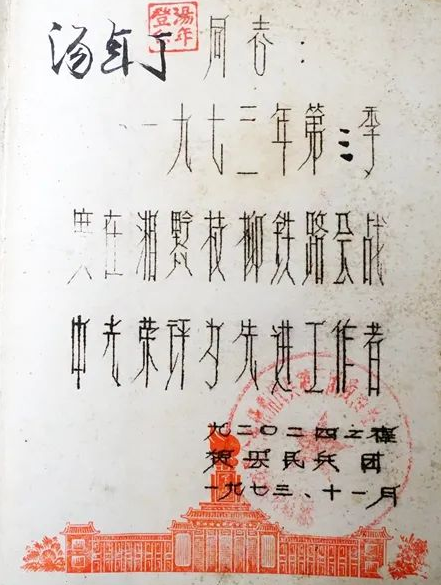 汤年丁 同志:
一九七三年第三季
度在湘黔枝柳铁路会战
中光荣评为先进工作者
九二〇二四工程
民兵团
一九七三、十一月